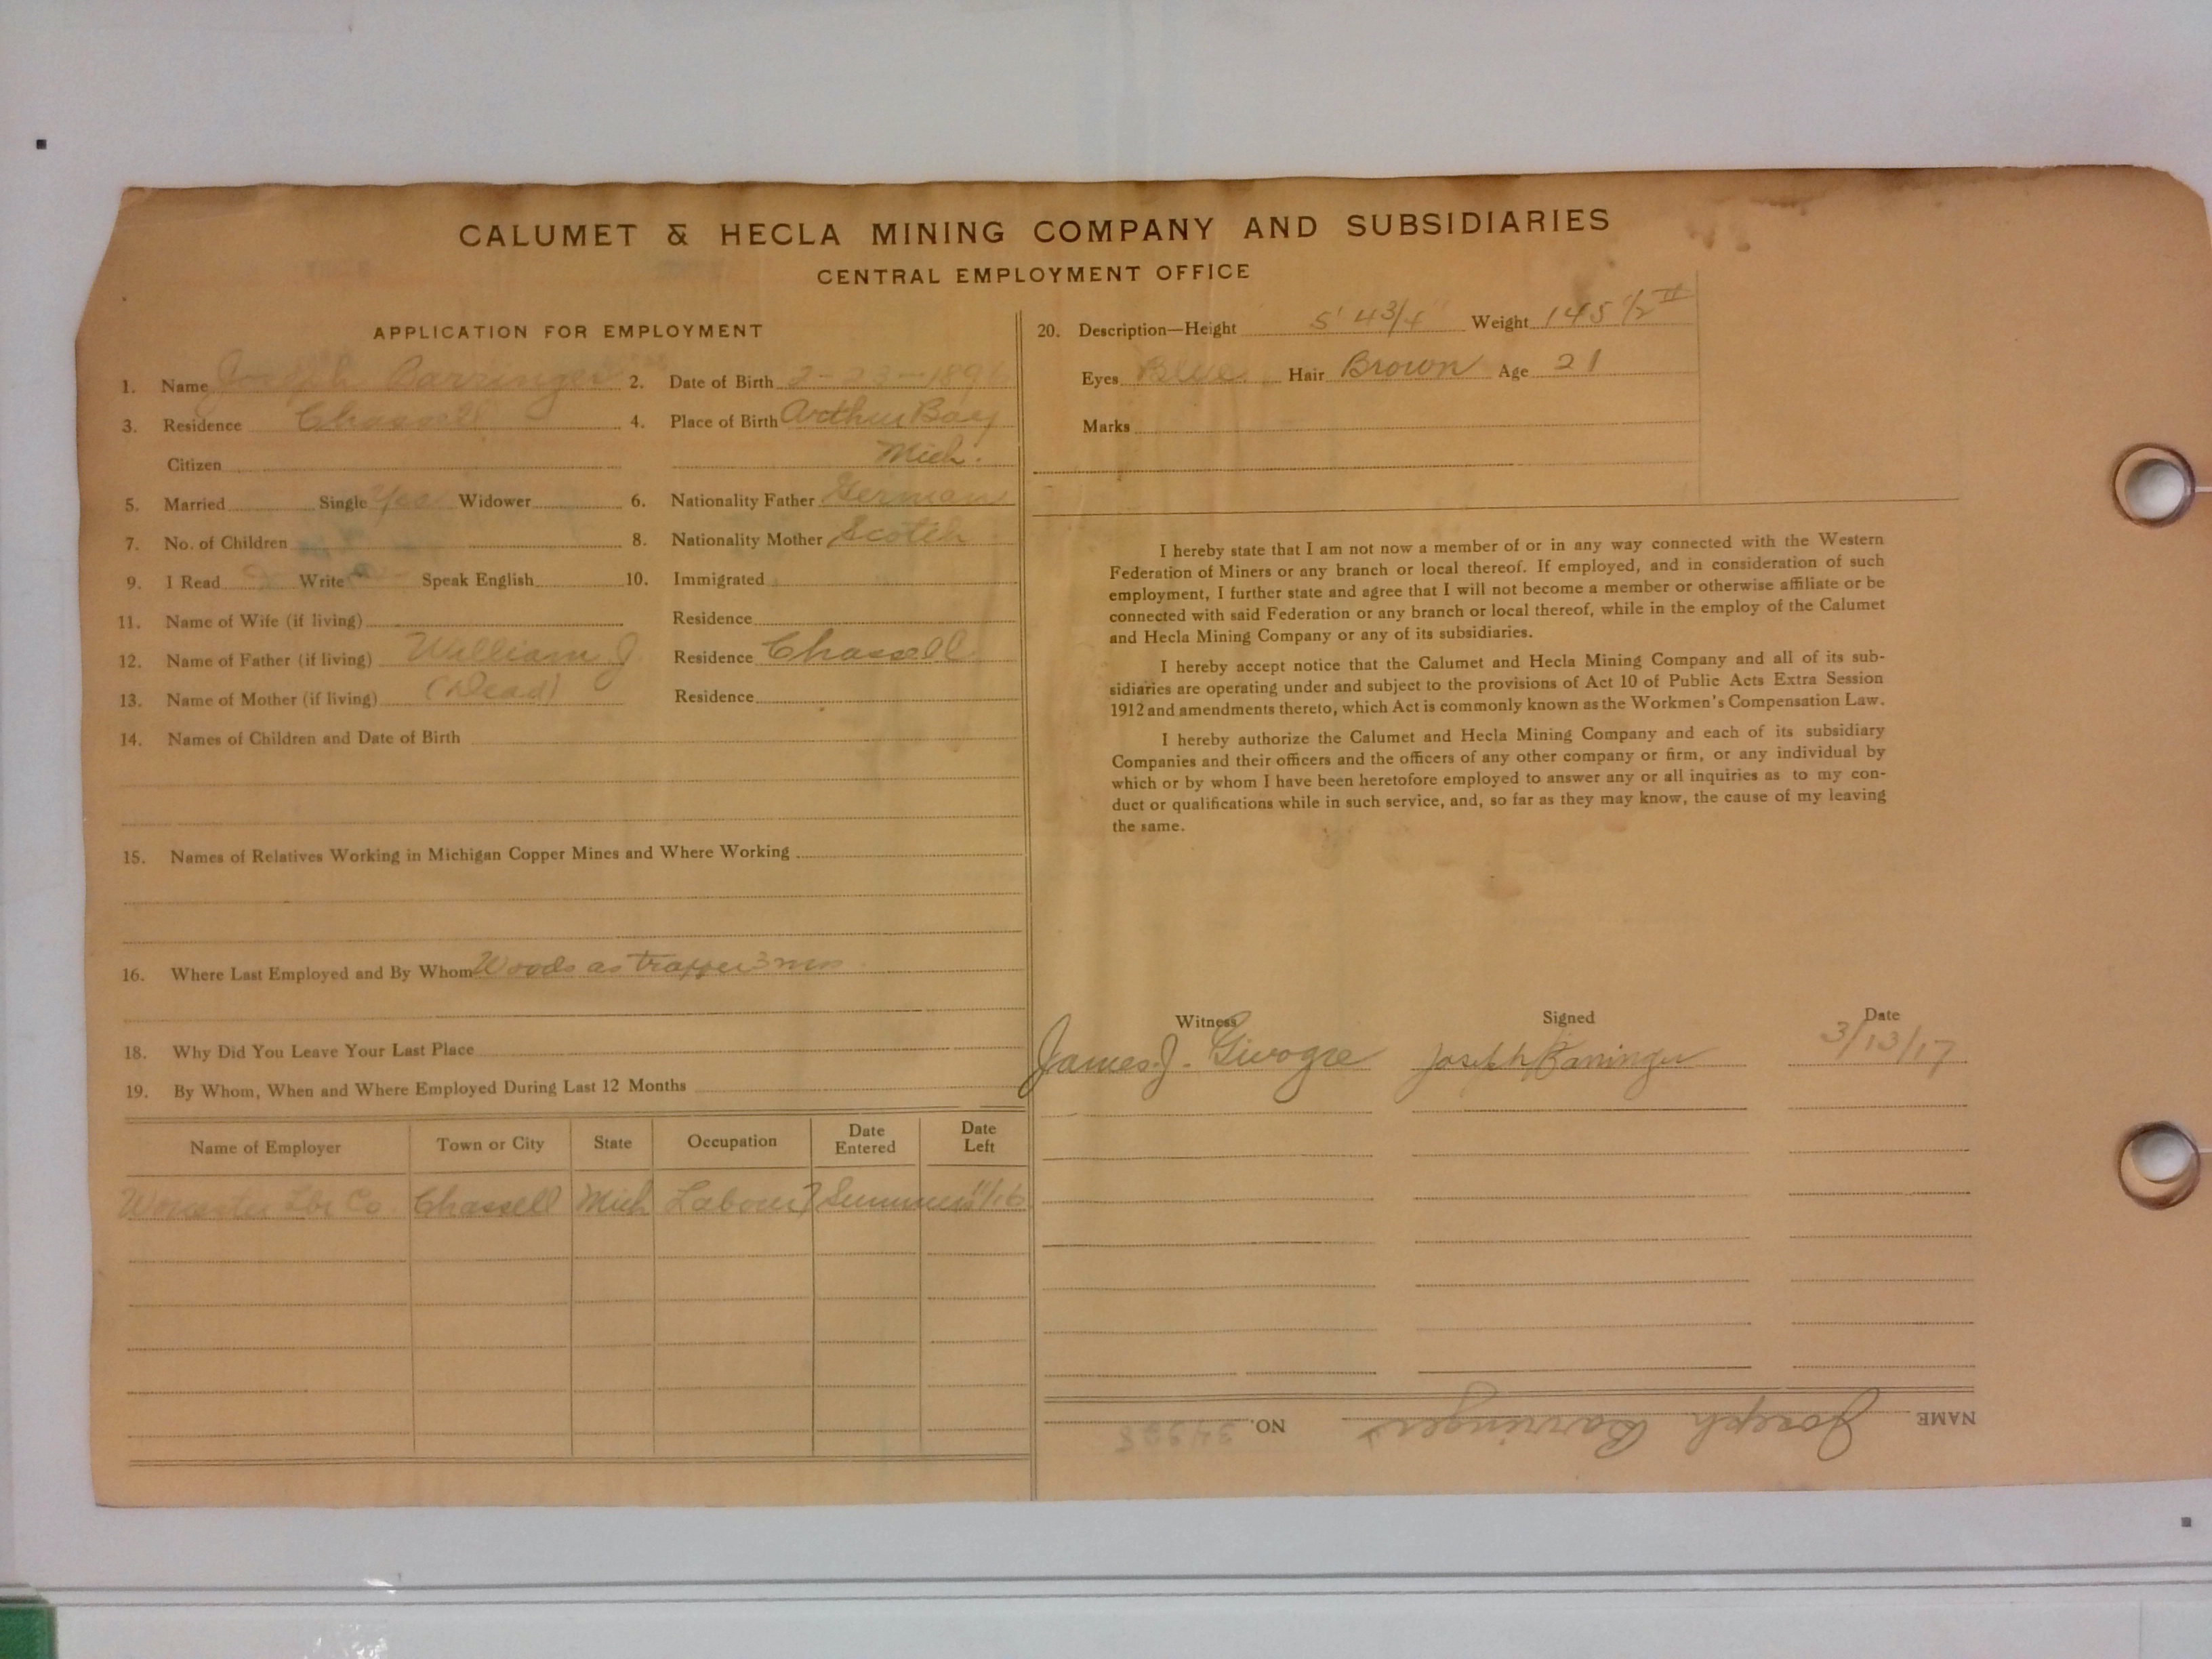 CALUMET & HECLA MINING COMPANY AND SUBSIDIARIES
CENTRAL EMPLOYMENT OFFICE
APPLICATION FOR EMPLOYMENT
1. Name Joseph Barringer 2. Date of Birth 2-23-189
3. Residence Chassell 4. Place of Birth Arthur Bay
Citizen Mich.
5. Married Single Yes Widower 6. Nationality Father German
7. No. of Children 8. Nationality Mother Scotch
9. I Read Write Speak English 10. Immigrated
11. Name of Wife (if living) Residence
12. Name of Father (if living) William J. Residence Chassell
13. Name of Mother (if living) (Dead) Residence
14. Names of Children and Date of Birth
15. Names of Relatives Working in Michigan Copper Mines and Where Working
16. Where Last Employed and By Whom Woods as trapper 3 mos
18. Why Did You Leave Your Last Place
19. By Whom, When and Where Employed During Last 12 Months
Name of Employer Town or City State Occupation Date Entered Date Left
Worcester Lbr Co. Chassell Mich Labour 7 Summers 11/16
20. Description—Height 5' 4 3/4" Weight 145 1/2
Eyes Blue Hair Brown Age 21
Marks
I hereby state that I am not now a member of or in any way connected with the Western
Federation of Miners or any branch or local thereof. If employed, and in consideration of such
employment, I further state and agree that I will not become a member or otherwise affiliate or be
connected with said Federation or any branch or local thereof, while in the employ of the Calumet
and Hecla Mining Company or any of its subsidiaries.
I hereby accept notice that the Calumet and Hecla Mining Company and all of its sub-
sidiaries are operating under and subject to the provisions of Act 10 of Public Acts Extra Session
1912 and amendments thereto, which Act is commonly known as the Workmen's Compensation Law.
I hereby authorize the Calumet and Hecla Mining Company and each of its subsidiary
Companies and their officers and the officers of any other company or firm, or any individual by
which or by whom I have been heretofore employed to answer any or all inquiries as to my con-
duct or qualifications while in such service, and, so far as they may know, the cause of my leaving
the same.
Witness Signed Date
James J. Givogre Joseph Barringer 3/13/17
NAME Joseph Barringer NO.